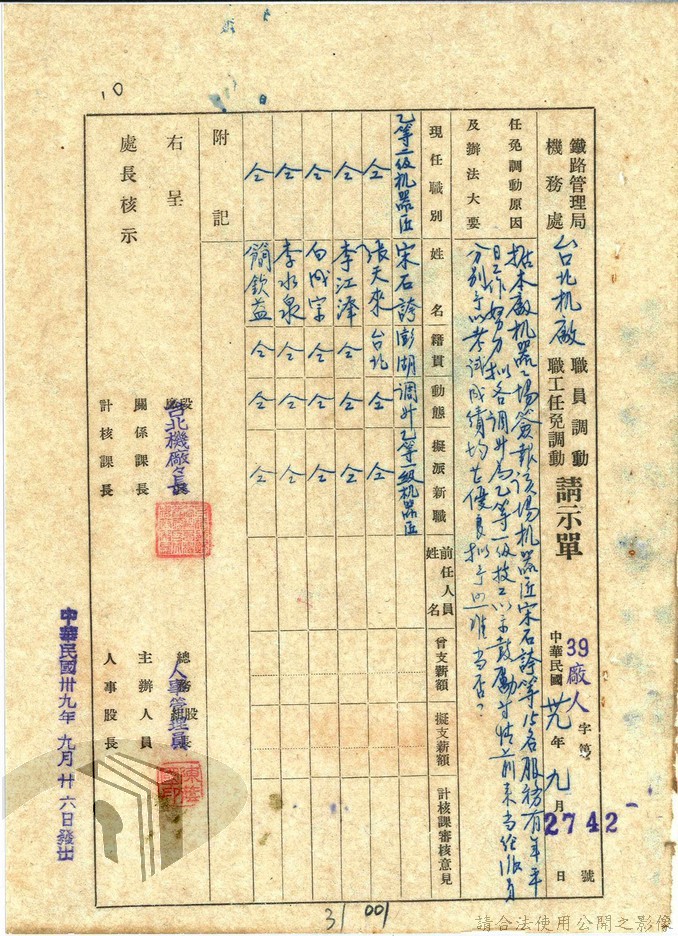 鐵路管理局
機務處
台北机廠
職員調動
職工任免調動
請示單
39廠人字第2742號
中華民國卅九年九月 日
任免調動原因
及辦法大要
據本廠机器工場簽報該場机器匠宋石誇等15名服務有年平
日工作努力擬各調升為乙等一級技工以示鼓勵等情前來當經派員
分別予以考試成績均甚優良擬予照准當否?
現任職別 姓名 籍貫 動態 擬派新職 前任人員姓名 曾支薪額 擬支薪額 計核課審核意見
乙等二級机器匠 宋石誇 澎湖 調升 乙等一級机器匠
仝 張天來 台北 仝 仝
仝 李江泽 仝 仝 仝
仝 白成宗 仝 仝 仝
仝 李水泉 仝 仝 仝
仝 簡欽益 仝 仝 仝
附記
右呈
處長核示
台北機廠廠長
關係課長
計核課長
人事管理員
主辦人員
人事股長
中華民國卅九年九月廿六日發出
10
31
001
請合法使用公開之影像